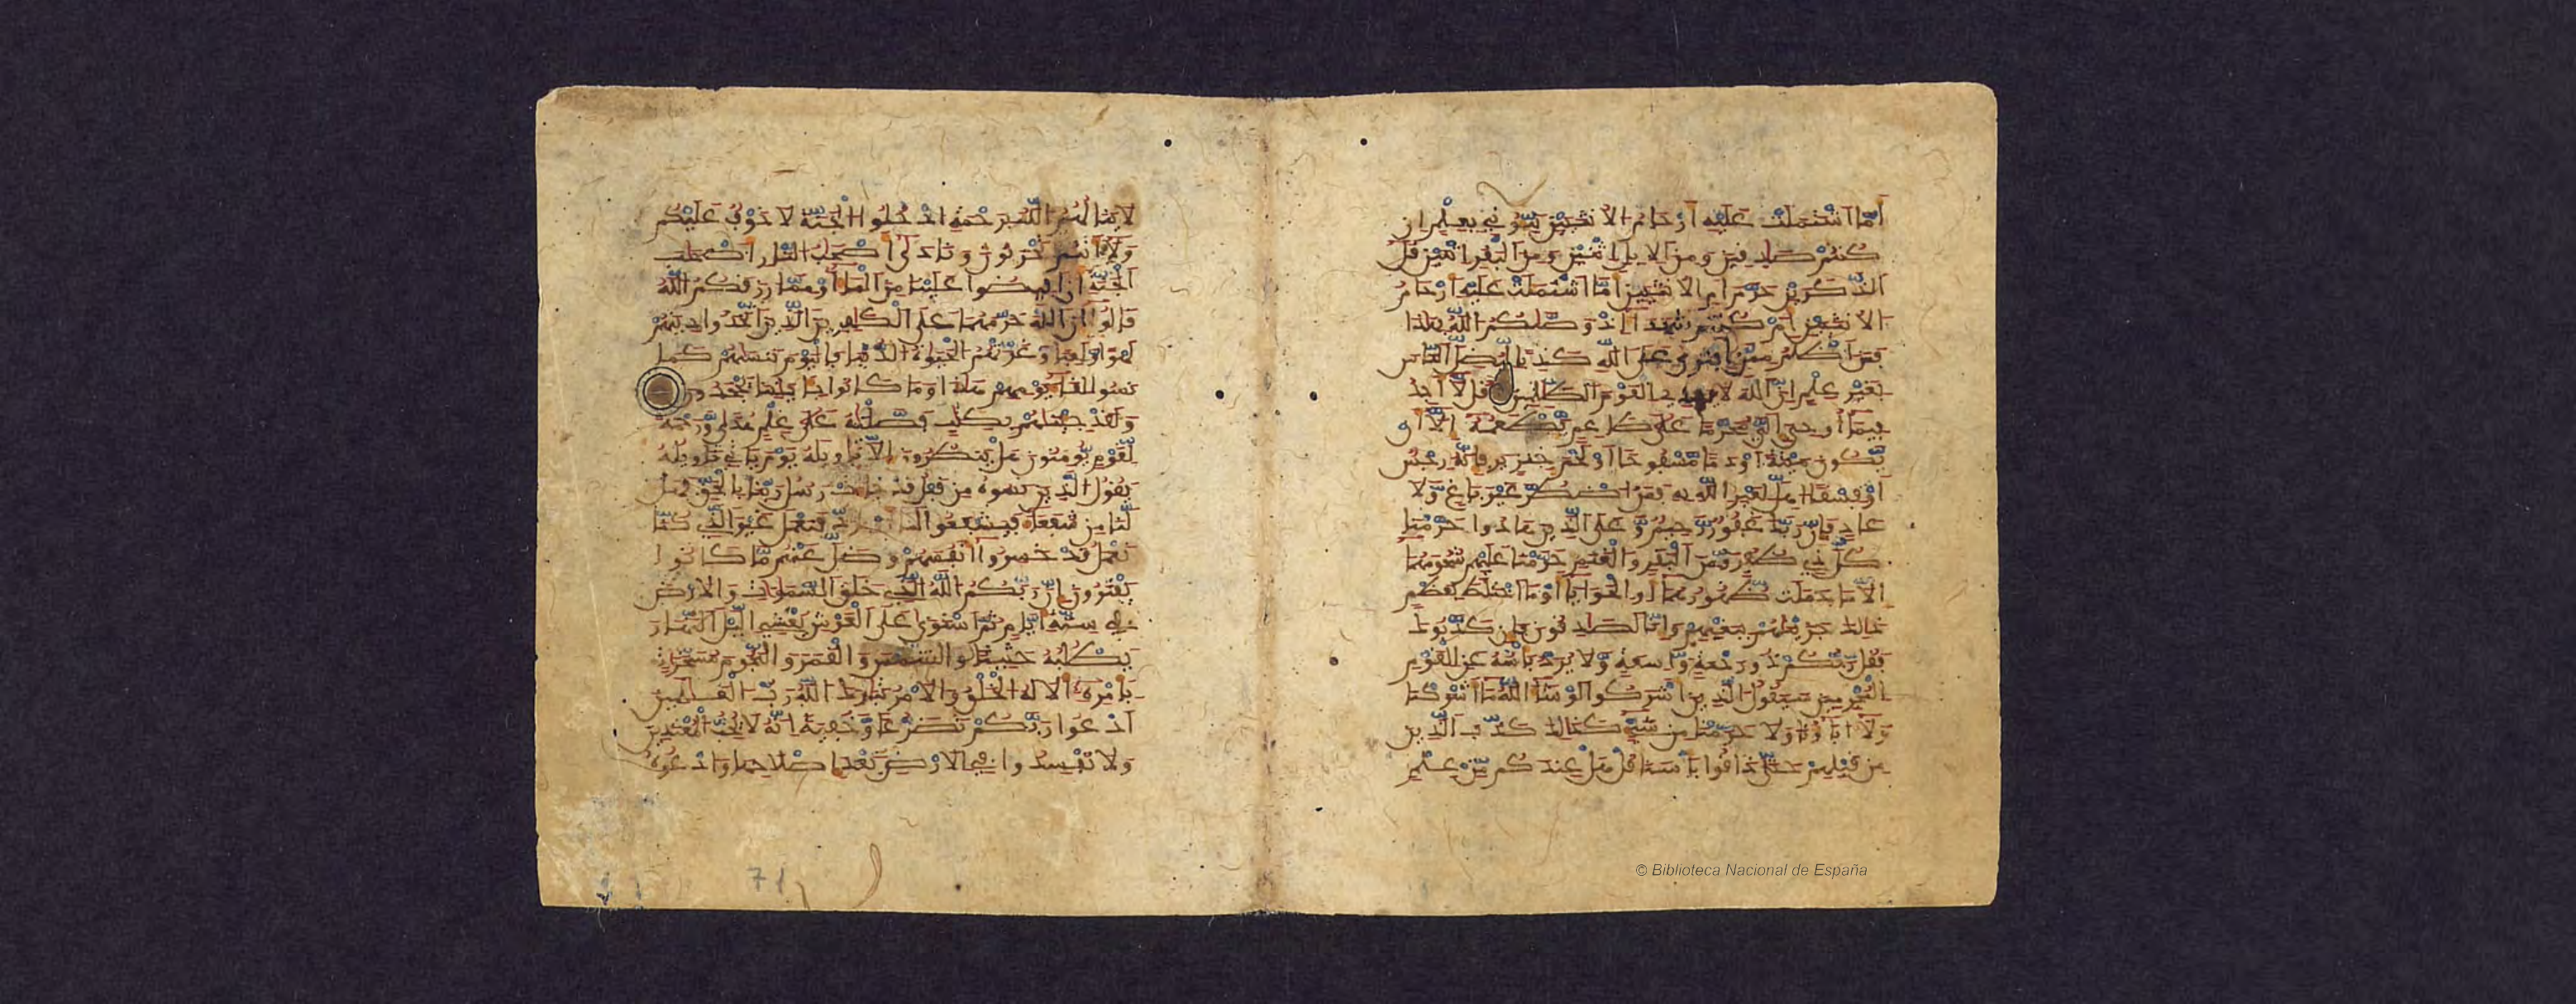 أما اشتملت عليه أرحام الانثيين نبّوني بعلم ان
كنتم صدقين ومن الابل اثنين ومن البقر اثنين قل
آلذّكرين حرّم ام الانثيين امّا اشتملت عليه ارحام
الانثيين ام كنتم شهدا اذ وصّىكم الله بهذا
فمن اظلم ممّن افترى على الله كذبا ليضلّ الناس
بغير علم انّ الله لا يهدي القوم الظّلمين قل لّا أجد
فيما أوحي إليّ محرّما على طاعم يطعمه إلّا أن
يّكون ميتة أو دما مّسفوحا أو لحم خنزير فإنّه رجس
أو فسقا اهلّ لغير الله به فمن اضطرّ غير باغ وّلا
عاد فإنّ ربّك غفور رّحيم وّعلى الّذين هادوا حرّمنا
كلّ ذي ظفر ومن البقر والغنم حرّمنا عليهم شحومهما
الّا ما حملت ظّهورهما أو الحوايا أو ما اختلط بعظم
ذلك جزينهم ببغيهم وإنّا لصدقون فإن كذّبوك
فقل ربّكم ذو رحمة وّسعة وّلا يردّ بأسه عن القوم
المجرمين سيقول الّذين أشركوا لو شا الله ما أشركنا
ولا اباؤنا ولا حرّمنا من شيء كذلك كذّب الّذين
من قبلهم حتّى ذاقوا بأسنا قل هل عندكم مّن علم
لا ينالهم الله برحمة ادخلوا الجنّة لا خوف عليكم
ولا أنتم تحزنون ونادى أصحب النّار أصحب
الجنّة أن أفيضوا علينا من الما أو ممّا رزقكم الله
قالوا إنّ الله حرّمهما على الكفرين الّذين اتّخذوا دينهم
لهوا ولعبا وّغرّتهم الحيوة الدّنيا فاليوم ننسىهم كما
نسوا لقا يومهم هذا وما كانوا بايتنا يجحدون
ولقد جئنهم بكتب فصّلنه على علم هدى وّرحمة
لّقوم يّومنون هل ينظرون إلّا تاويله يوم ياتي تاويله
يقول الّذين نسوه من قبل قد جات رسل ربّنا بالحقّ فهل
لّنا من شفعا فيشفعوا لنا أو نردّ فنعمل غير الّذي كنّا
نعمل قد خسروا أنفسهم وضلّ عنهم مّا كانوا
يفترون إنّ ربّكم الله الّذي خلق السّموت والارض
في ستّة أيّام ثمّ استوى على العرش يغشي الّيل النّهار
يطلبه حثيثا والشّمس والقمر والنّجوم مسخّرت
بأمره ألا له الخلق والامر تبرك الله ربّ العلمين
ادعوا ربّكم تضرّعا وّخفية إنّه لا يحبّ المعتدين
ولا تفسدوا في الارض بعد إصلحها وادعوه
71
© Biblioteca Nacional de España